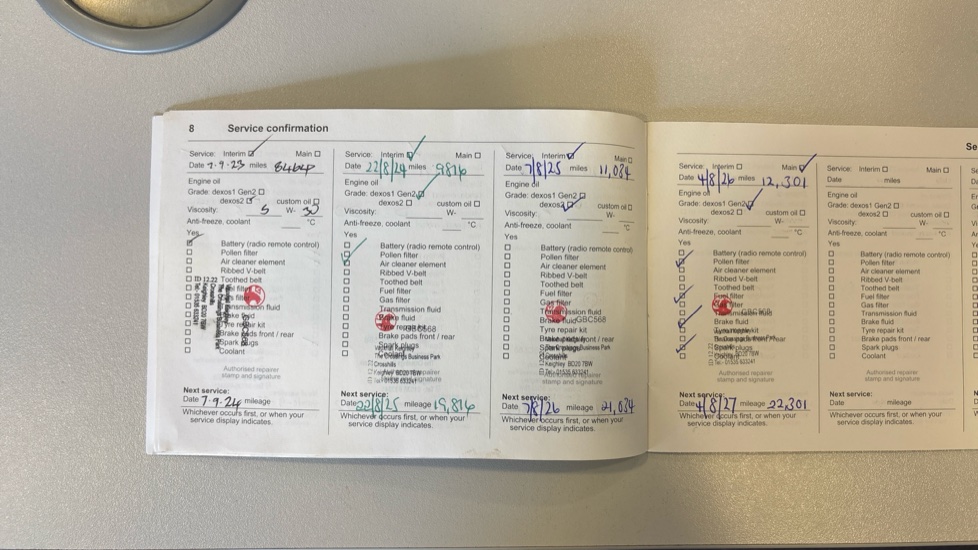 8 Service confirmation
Service: Interim Main
Date 7.9.23 miles 8464
Engine oil
Grade: dexos1 Gen2
dexos2 custom oil
Viscosity: 5 W- 30
Anti-freeze, coolant °C
Yes
Battery (radio remote control)
Pollen filter
Air cleaner element
Ribbed V-belt
Toothed belt
Fuel filter
Gas filter
Transmission fluid
Brake fluid
Tyre repair kit
Brake pads front / rear
Spark plugs
Coolant
Authorised repairer
stamp and signature
Next service:
Date 7.9.24 mileage
Whichever occurs first, or when your
service display indicates.
Service: Interim Main
Date 22/8/24 miles 9816
Engine oil
Grade: dexos1 Gen2
dexos2 custom oil
Viscosity: W-
Anti-freeze, coolant °C
Yes
Battery (radio remote control)
Pollen filter
Air cleaner element
Ribbed V-belt
Toothed belt
Fuel filter
Gas filter
Transmission fluid
Brake fluid
Tyre repair kit
Brake pads front / rear
Spark plugs
Coolant
The Crossings Business Park
Crosshills
Keighley BD20 7BW
Tel: 01535 633241
Next service:
Date 22/8/25 mileage 19,816
Whichever occurs first, or when your
service display indicates.
Service: Interim Main
Date 7/8/25 miles 11,034
Engine oil
Grade: dexos1 Gen2
dexos2 custom oil
Viscosity: W-
Anti-freeze, coolant °C
Yes
Battery (radio remote control)
Pollen filter
Air cleaner element
Ribbed V-belt
Toothed belt
Fuel filter
Gas filter
Transmission fluid
Brake fluid GBC568
Tyre repair kit
Brake pads front / rear
Spark plugs
Coolant
Keighley BD20 7BW
Tel: 01535 633241
stamp and signature
Next service:
Date 7/8/26 mileage 21,034
Whichever occurs first, or when your
service display indicates.
Service: Interim Main
Date 4/8/26 miles 12,301
Engine oil
Grade: dexos1 Gen2
dexos2 custom oil
Viscosity: W-
Anti-freeze, coolant °C
Yes
Battery (radio remote control)
Pollen filter
Air cleaner element
Ribbed V-belt
Toothed belt
Fuel filter
Gas filter
Transmission fluid
Brake fluid
Tyre repair kit
Brake pads front / rear
Spark plugs
Coolant
Authorised repairer
stamp and signature
Next service:
Date 4/8/27 mileage 22,301
Whichever occurs first, or when your
service display indicates.
Service: Interim Main
Date miles
Engine oil
Grade: dexos1 Gen2
dexos2 custom oil
Viscosity: W-
Anti-freeze, coolant °C
Yes
Battery (radio remote control)
Pollen filter
Air cleaner element
Ribbed V-belt
Toothed belt
Fuel filter
Gas filter
Transmission fluid
Brake fluid
Tyre repair kit
Brake pads front / rear
Spark plugs
Coolant
Authorised repairer
stamp and signature
Next service:
Date mileage
Whichever occurs first, or when your
service display indicates.
Se